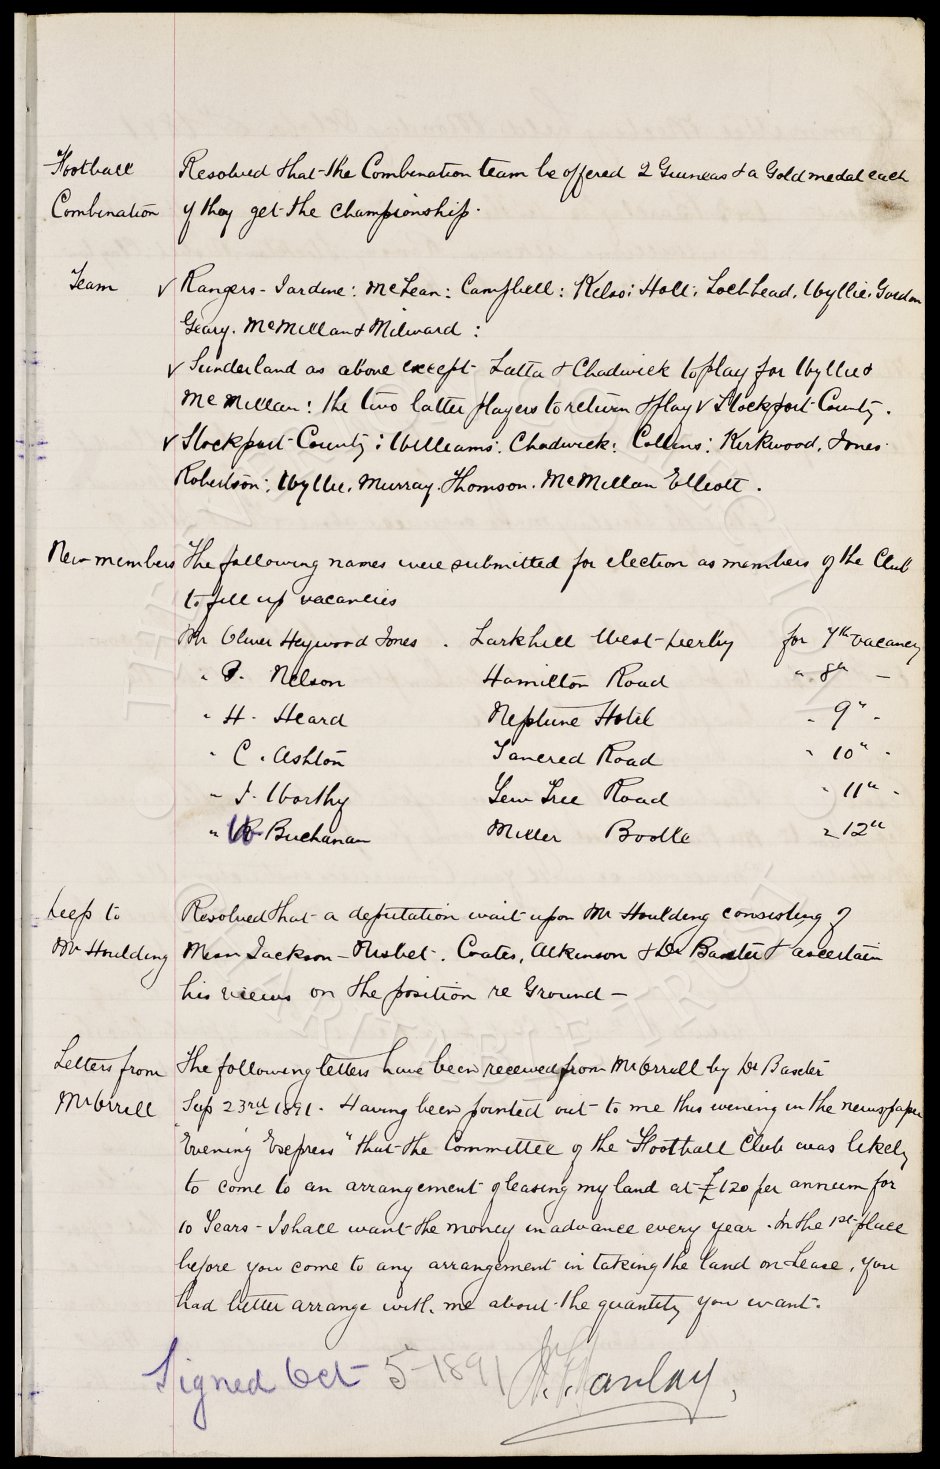 Football Resolved that the Combination team be offered 2 Guineas & a Gold medal each
Combination if they get the championship.
Team v Rangers - Jardine: McLean: Campbell: Kelso: Holt: Lochhead. Wyllie. Gordon
Geary. McMillan & Milward :
v Sunderland as above except Latta & Chadwick to play for Wyllie &
McMillan: the two latter players to return & play v Stockport County.
v Stockport County: Williams: Chadwick: Collins: Kirkwood. Jones
Robertson: Wyllie. Murray. Thomson. McMillan Elliott.
New members The following names were submitted for election as members of the Club
to fill up vacancies
Mr Oliver Heywood Jones . Larkhill West Derby for 7th vacancy
" Nelson Hamilton Road " 8th -
" H. Heard Neptune Hotel " 9" "
" C. Ashton Tancred Road " 10" "
" J. Worthy Yew Tree Road " 11th "
" W Buchanan Miller Bootle " 12th
Deep to Resolved that a deputation wait upon Mr Houlding consisting of
Mr Houlding Messrs Jackson - Nisbet. Coates, Atkinson & Dr Baxter & ascertain
his views on the position re Ground -
Letters from The following letters have been received from Mr Orrell by Dr Baxter
Mr Orrell Sep 23rd 1891. Having been pointed out to me this evening in the newspaper
"Evening Express" that the Committee of the Football Club was likely
to come to an arrangement of leasing my land at £120 per annum for
10 Years - I shall want the money in advance every year. In the 1st place
before you come to any arrangement in taking the land on Lease, you
had better arrange with me about the quantity you want.
Signed Oct 5 - 1891